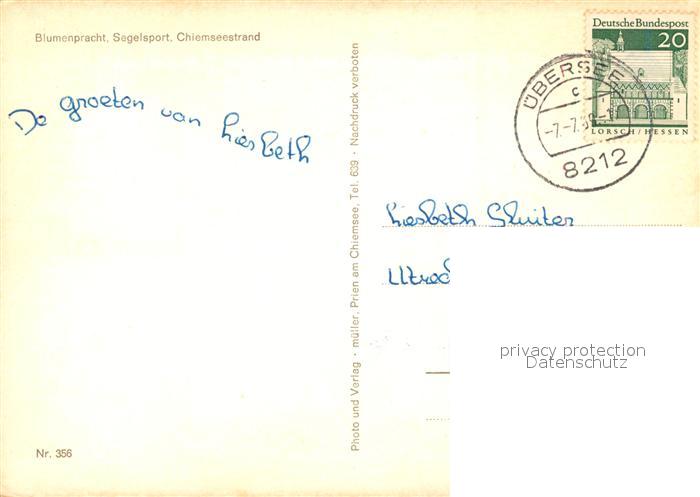 Blumenpracht, Segelsport, Chiemseestrand
De groeten van Liesbeth
Nr. 356
Photo und Verlag · müller, Prien am Chiemsee, Tel. 639 · Nachdruck verboten
Deutsche Bundespost
20
LORSCH/HESSEN
ÜBERSEE
c
8212
Liesbeth Sluiter
privacy protection
Datenschutz